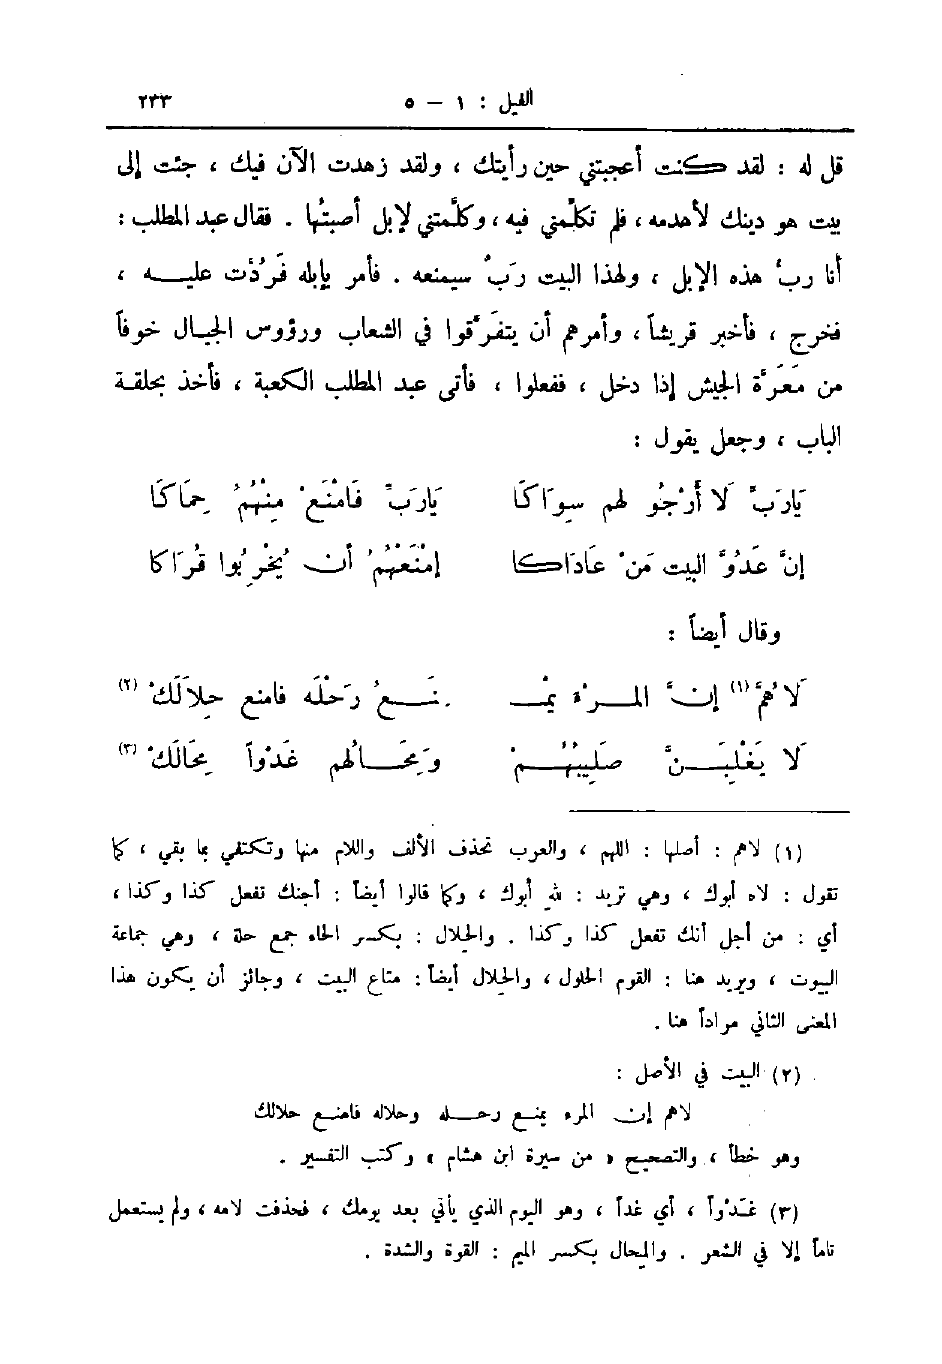 الفيل : ١ – ٥ ٢٣٣
قل له : لقد كنت أعجبتني حين رأيتك ، ولقد زهدت الآن فيك ، جئت إلى
بيت هو دينك لأهدمه ، فلم تكلِّمني فيه ، وكلَّمتني لإبل أصبتُها . فقال عبد المطلب :
أنا ربُّ هذه الإبل ، ولهذا البيت رَبٌ سيمنعه . فأمر بإبله فَرُدَّت عليه ،
فخرج ، فأخبر قريشاً ، وأمرهم أن يتفرَّقوا في الشعاب ورؤوس الجبال خوفاً
من مَعَرَّة الجيش إذا دخل ، ففعلوا ، فأتى عبد المطلب الكعبة ، فأخذ بحلقة
الباب ، وجعل يقول :
يَارَبِّ لَا أَرْجُو لهم سِوَاكَا يَارَبِّ فَامْنَعْ مِنْهُمُ حِمَاكَا
إنَّ عَدُوَّ البيت مَنْ عَادَاكا إمْنَعْهُمُ أن يُخْرِبُوا قُرَاكا
وقال أيضاً :
لَاهُمَّ (١) إنَّ المرْءَ يمْـ ـنَعُ رَحْلَه فامنع حِلاَلَكْ (٢)
لَا يَغْلِبَنَّ صَلِيبُهُمْ وَمِحَالُهم غَدْواً مِحَالَكْ (٣)
(١) لاهم : أصلها : اللهم ، والعرب تحذف الألف واللام منها وتكتفي بما بقي ، كما
تقول : لاه أبوك ، وهي تريد : لله أبوك ، وكما قالوا أيضاً : أجنك تفعل كذا وكذا ،
أي : من أجل أنك تفعل كذا وكذا . والحلال : بكسر الحاء جمع حلة ، وهي جماعة
البيوت ، ويريد هنا : القوم الحلول ، والحلال أيضاً : متاع البيت ، وجائز أن يكون هذا
المعنى الثاني مراداً هنا .
(٢) البيت في الأصل :
لاهم إن المرء يمنع رحله وحلاله فامنع حلالك
وهو خطأ ، والتصحيح « من سيرة ابن هشام » وكتب التفسير .
(٣) غَدْواً ، أي غداً ، وهو اليوم الذي يأتي بعد يومك ، فحذفت لامه ، ولم يستعمل
تاماً إلا في الشعر . والمِحال بكسر الميم : القوة والشدة .